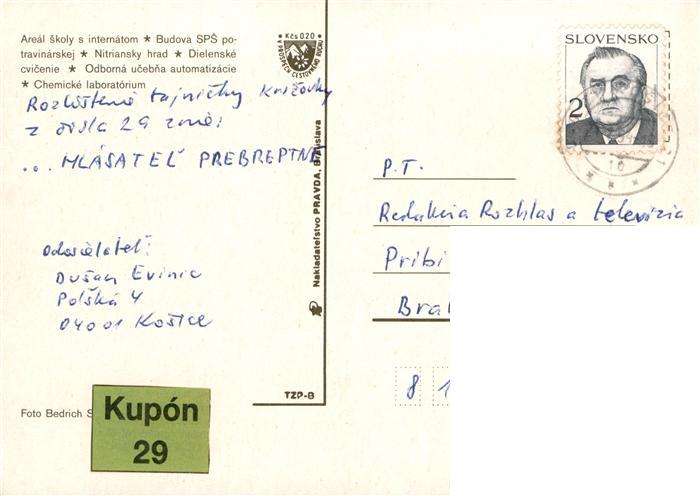 Areál školy s internátom ★ Budova SPŠ po-
travinárskej ★ Nitriansky hrad ★ Dielenské
cvičenie ★ Odborná učebňa automatizácie
★ Chemické laboratórium
Kčs 0,20
Rozlúštenie tajničky Krížovky
z čísla 29 znie:
... HLÁSATEĽ PREBREPTNE
Odosielateľ:
Dušan Evinic
Polská 4
04001 Košice
Foto Bedrich S
Kupón
29
Nakladateľstvo PRAVDA, Bratislava
TZP-B
SLOVENSKO
2
10
P.T.
Redakcia Rozhlas a televízia
Pribi
Brat
8 1